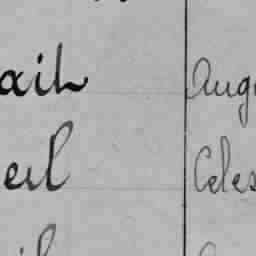 ail Aug
eil Celes
il